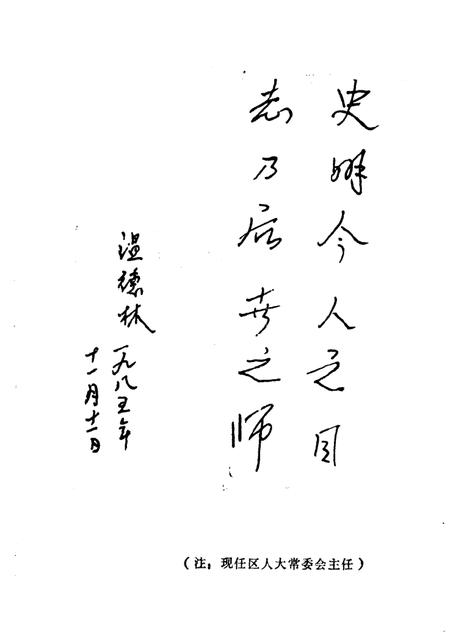 史明今人之目
志乃后世之师
温德林
一九八五年
十一月十一日
（注：现任区人大常委会主任）